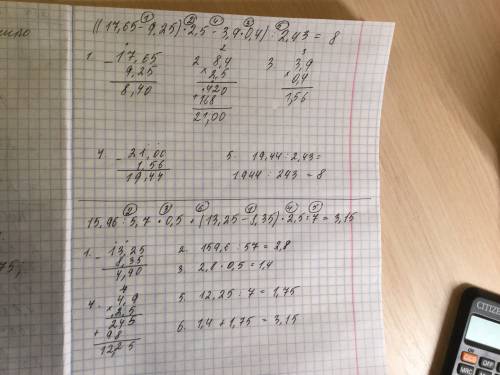 ((17,65 - 9,25) · 2,5 - 3,9 · 0,4) : 2,43 = 8
1 2 4 3 5
1. - 17,65
9,25
8,40
2. 8,4
2
× 2,5
420
+ 168
21,00
3. 3,9
3
× 0,4
1,56
4. - 21,00
1,56
19,44
5. 19,44 : 2,43 =
1944 : 243 = 8
2 3 6 1 4 5
15,96 : 5,7 · 0,5 + (13,25 - 8,35) · 2,5 : 7 = 3,15
1. - 13,25
8,35
4,90
2. 159,6 : 57 = 2,8
3. 2,8 · 0,5 = 1,4
4
4. 4,9
× 2,5
245
+ 98
12,25
5. 12,25 : 7 = 1,75
6. 1,4 + 1,75 = 3,15
75,
CITIZE
ON
OFF
MRC